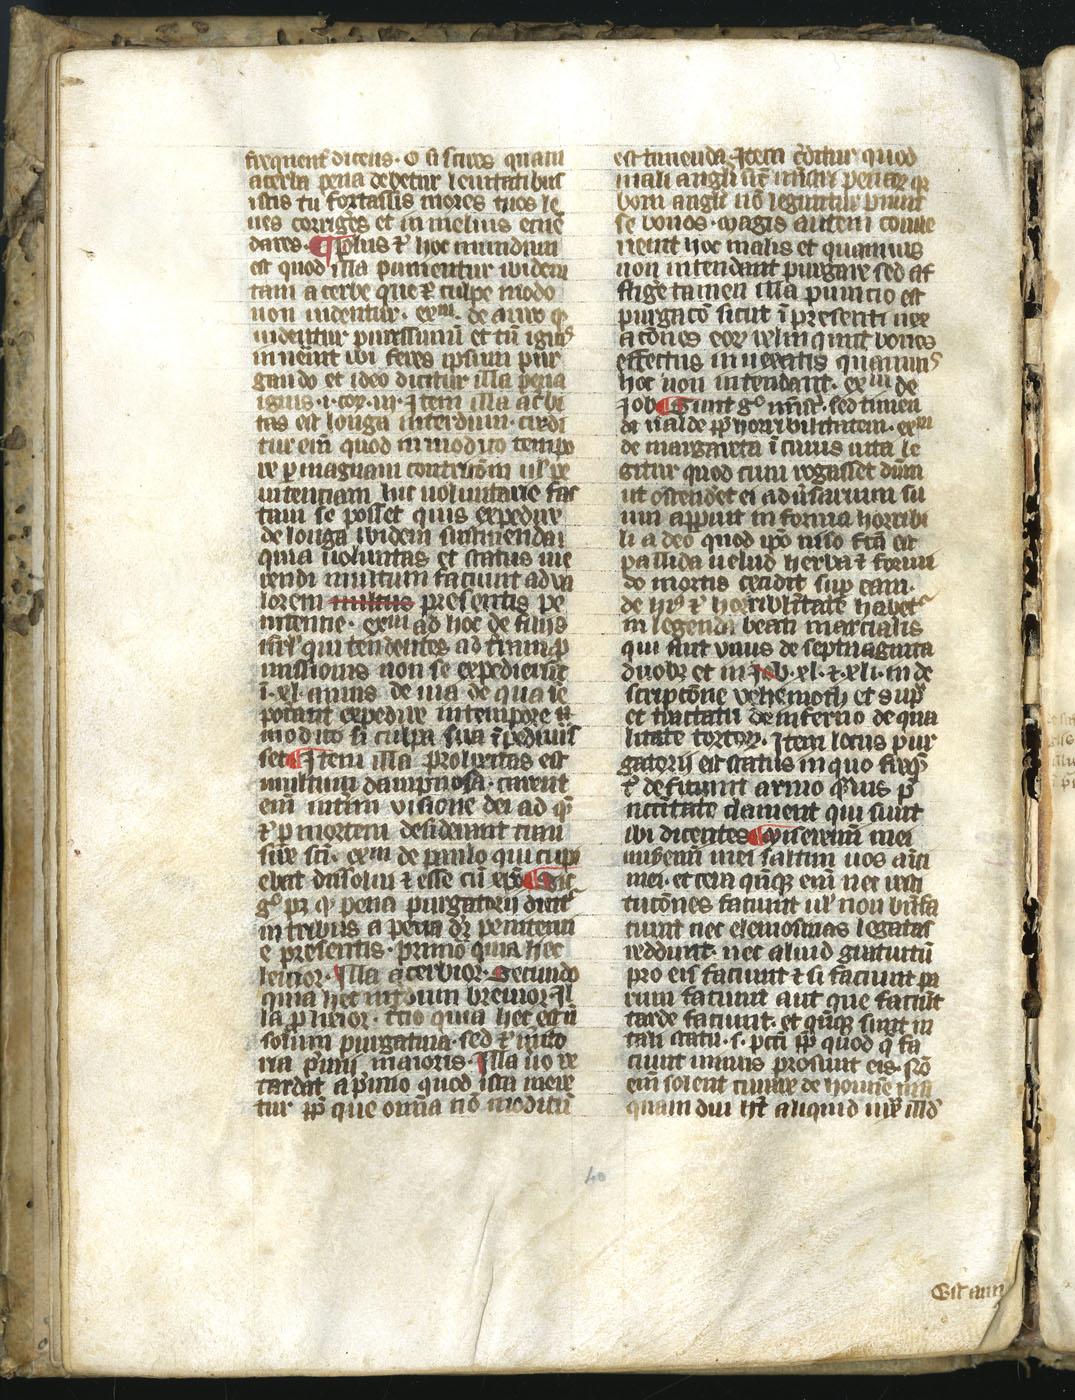 frequent̉ dicens. O si scires quam
acerba pena debetur leuitatibus
istis tu fortassis mores tuos le
ues corriges et in melius emē
dares. ¶ Plus ⁊ hoc
est quod illa punientur ibidem
tam acerbe que ⁊ culpe modo
non uidentur. exᵐ. de auro qͥ
uidetur purissimū et tn̄ ignis
inueint ibi feces ipsum pur
gando et ideo dicitur illa pena
ignis .i. cor. iij. Item illa acerbi
tas est longa interdum. credi
tur em̄ quod in modico tempo
re ꝑ magnam contricōm ul̓ pe
nitenciam hic uoluntarie fac
tam se posset quis expedire
de longa ibidem sustinenda
quia uoluntas et status me
rendi multum faciunt ad va
lorem multus presentis pe
nitentie. exᵐ ad hoc de filijs
isrl̓ qui tendentes ad terram ꝓ
missionis non se expedierūt
ī .xl. annis de uia de qua se
poterant expedire in tempore
modico si culpa sua īpediuis
set ¶ Item illa prolixitas est
multum dampnosa. carent
em̄ intim uisione dei ad qͣ
⁊ ꝑ mortem desiderant
sūre scī. exᵐ de paulo qui cupi
ebat dissolui ⁊ esse cū xp̄o ¶ Sic
gͦ pꝫ qͥ pena purgatorij
in tribus a pena penitenti
e presentis. primo quia hec
leuior. Illa acerbior. Secundo
quia hec nimium breuior Il
la ꝓlixior. t̓cio quia hec
solum purgatiua. sed ⁊ merito
ria p̓mij maioris. Illa uo re
tardat a p̓mio quod ista mere
tur ꝓp̄ que om̄a nō modicū
est timenda. Item c̄ditur quod
mali angli sūt mīstri penarꝫ qͥ
boni angli nō leguntur punire
se bonos. Magis autem conue
nerit hoc malis et quamuis
non intendant purgare sed af
flige tamen illa punicio est
purgacō sicut ī presenti uex
acōnes eorꝫ relinqunt bonos
effectus in uexatis quamuis
hoc non intendant. exᵐ de
Iob ¶ Sunt gͦ mīstr̄. sed timen
di ualde ꝓp̄ horribilitatem. exᵐ
de margareta ī cuius uita le
gitur quod cum rogasset dn̄m
ut ostendet ei aduersarium su
um apparuit in forma horribi
li adeo quod ipō uiso fcā est
pallida uelud herba ⁊ formi
do mortis cecidit suꝑ eam.
de hijs ⁊ horribilitate habetr̄
in legenda beati marcialis
qui fuit vnus de septuaginta
duobꝫ et in Iob .xl. ⁊ .xli. in de
scripcōne vehemoth et supͣ
et tractatu de inferno de qua
litate tortorꝫ. Item locus pur
gatorij est status in quo
⁊ deficiunt amici qͣuis ꝑ
necessitate clament qui sunt
ibi dicentes ¶ Miseremī mei
miserem̄ mei saltim uos amici
mei. et cetera qn̄qꝫ em̄ nec resti
tucōnes faciunt ul̓ non bn̄ fa
ciunt nec elemosinas legatas
reddunt. nec aliud gratuitū
pro eis faciunt ⁊ si faciunt pa
rum faciunt aut que faciūt
tarde faciunt. et qn̄qꝫ sunt in
tali statu .s. pccī ꝓp̄ quod qͥ fa
ciunt minus prosunt eis. sꝫ
em̄ solent curare de homine
quam diu hn̄t aliquid
40
Est